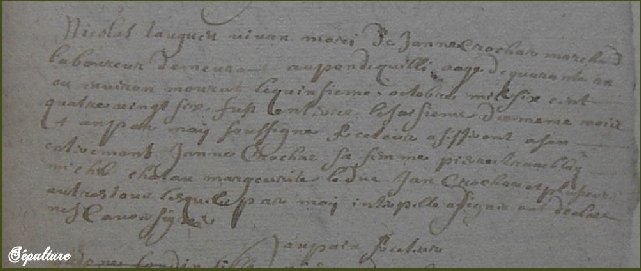 Nicolas Lauguen vivan mari de Janne Crochar marchand
laboureur demeurant au pond quilli aagé de quarante an
ou environ mourut le quinsieme octobre mil six cent
quatre vingt six fust enterré le sasieme dememe mois
et an par moy soussigné Recteur assistant a son
enterrement Janne Crochar sa femme pierre
michel marguerite le duc Jan Crochar et plusieurs
autres tous lesquels par moy interpellé a signer ont declaré
ne scavoir signer
Recteur
Sépulture